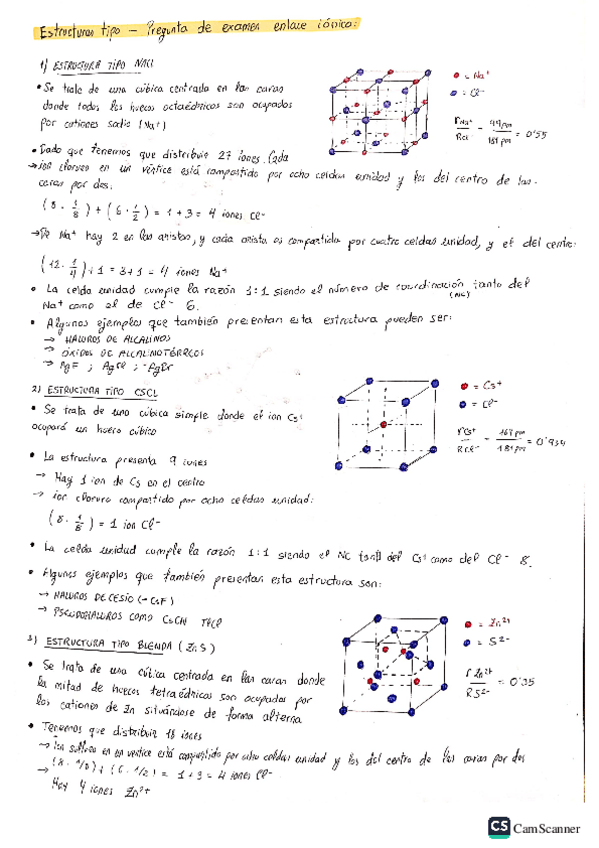 Estructuras tipo - Pregunta de examen enlace iónico:
1) ESTRUCTURA TIPO NaCl
• Se trata de una cúbica centrada en las caras
donde todos los huecos octaédricos son ocupados
por cationes sodio (Na⁺)
= Na⁺
= Cl⁻
rNa⁺ / RCl⁻ = 99 pm / 181 pm = 0'55
• Dado que tenemos que distribuir 27 iones. Cada
→ ion cloruro en un vértice está compartido por ocho celdas unidad y los del centro de las
caras por dos.
(8 · 1/8) + (6 · 1/2) = 1 + 3 = 4 iones Cl⁻
→ De Na⁺ hay 2 en las aristas, y cada arista es compartida por cuatro celdas unidad, y el del centro:
(12 · 1/4) + 1 = 3 + 1 = 4 iones Na⁺
• La celda unidad cumple la razón 1:1 siendo el número de coordinación (NC) tanto del
Na⁺ como el de Cl⁻ 6.
• Algunos ejemplos que también presentan esta estructura pueden ser:
→ HALUROS DE ALCALINOS
→ ÓXIDOS DE ALCALINOTÉRREOS
→ AgF ; AgCl ; AgBr
2) ESTRUCTURA TIPO CsCl
• Se trata de una cúbica simple donde el ion Cs⁺
ocupará un hueco cúbico
= Cs⁺
= Cl⁻
rCs⁺ / RCl⁻ = 167 pm / 181 pm = 0'934
• La estructura presenta 9 iones
→ Hay 1 ion de Cs en el centro
→ ion cloruro compartido por ocho celdas unidad:
(8 · 1/8) = 1 ion Cl⁻
• La celda unidad cumple la razón 1:1 siendo el NC tanto del Cs⁺ como del Cl⁻ 8.
• Algunos ejemplos que también presentan esta estructura son:
→ HALUROS DE CESIO (- CsF)
→ PSEUDOHALUROS COMO CsCN
3) ESTRUCTURA TIPO BLENDA (ZnS)
• Se trata de una cúbica centrada en las caras donde
la mitad de huecos tetraédricos son ocupados por
los cationes de Zn situándose de forma alterna
= Zn²⁺
= S²⁻
rZn²⁺ / RS²⁻ = 0'35
• Tenemos que distribuir 18 iones
→ ion sulfuro en un vértice está compartido por ocho celdas unidad y los del centro de las caras por dos
→ (8 · 1/8) + (6 · 1/2) = 1 + 3 = 4 iones Cl⁻
Hay 4 iones Zn²⁺
CS CamScanner